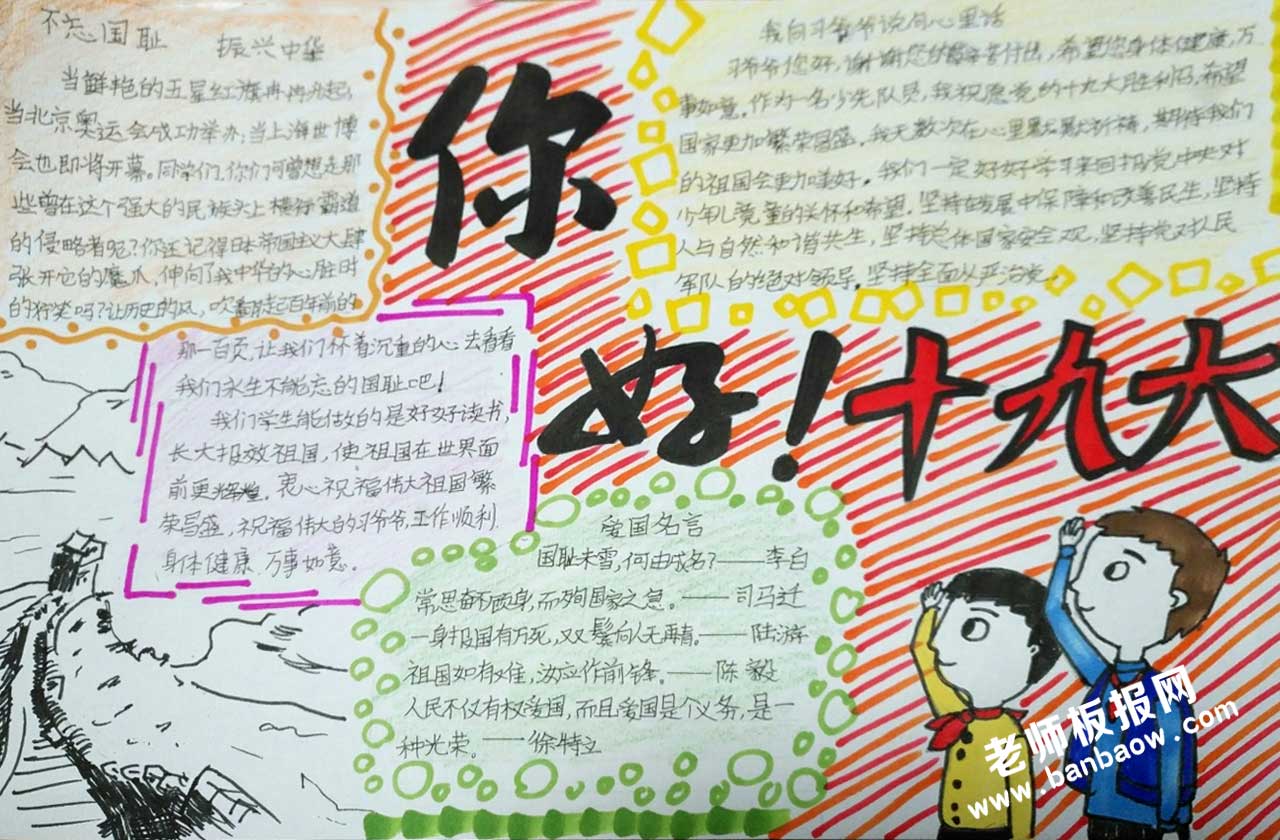 不忘国耻
振兴中华
当鲜艳的五星红旗冉冉升起,
当北京奥运会成功举办;当上海世博
会也即将开幕。同学们,你们可曾想起那
些曾在这个强大的民族头上横行霸道
的侵略者呢?你还记得日本帝国主义大肆
张开它的魔爪,伸向了我中华的心脏时
的狞笑吗?让历史的风,吹翻起百年前的
那一百页,让我们怀着沉重的心去看看
我们永生不能忘的国耻吧!
我们学生能做的是好好读书,
长大报效祖国,使祖国在世界面
前更辉煌。衷心祝福伟大祖国繁
荣昌盛,祝福伟大的习爷爷,工作顺利
身体健康 万事如意。
你
好!十九大
我向习爷爷说句心里话
习爷爷您好,谢谢您的辛苦付出,希望您身体健康,万
事如意。作为一名少先队员,我祝愿党的十九大胜利召,希望
国家更加繁荣昌盛。我无数次在心里默默祈祷,期待我们
的祖国会更加美好。我们一定好好学习来回报党中央对
少年儿童的关怀和希望。坚持在发展中保障和改善民生,坚持
人与自然和谐共生,坚持总体国家安全观,坚持党对人民
军队的绝对领导。坚持全面从严治党。
爱国名言
国耻未雪,何由成名?——李白
常思奋不顾身,而殉国家之急。——司马迁
一身报国有万死,双鬓向人无再青。——陆游
祖国如有难,汝应作前锋。——陈毅
人民不仅有权爱国,而且爱国是个义务,是一
种光荣。——徐特立
老师板报网
www.banbaow.com